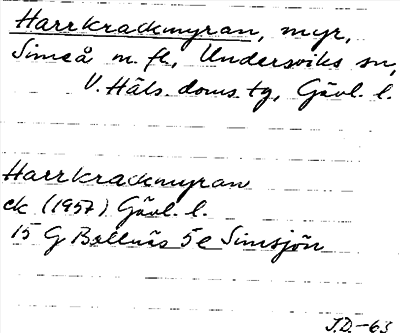 Harrkrackmyran, myr,
Simeå m. fl., Undersviks sn,
V. Häls. doms tg, Gävl. l.
Harrkrackmyran
ek (1957) Gävl. l.
15 G Bollnäs 5e Simsjön
J.D.-63